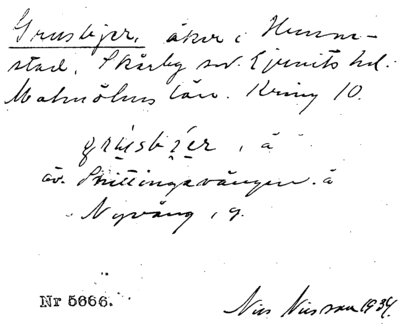 Grusbjer, åker i Hunne-
stad, Skårby sn. Ljunits hd.
Malmöhus län. Kring 10.
grusbjer, å
äv. Skittingavången. å
Nyvång, g.
Nr 5666. Nils Nilsson 1934.